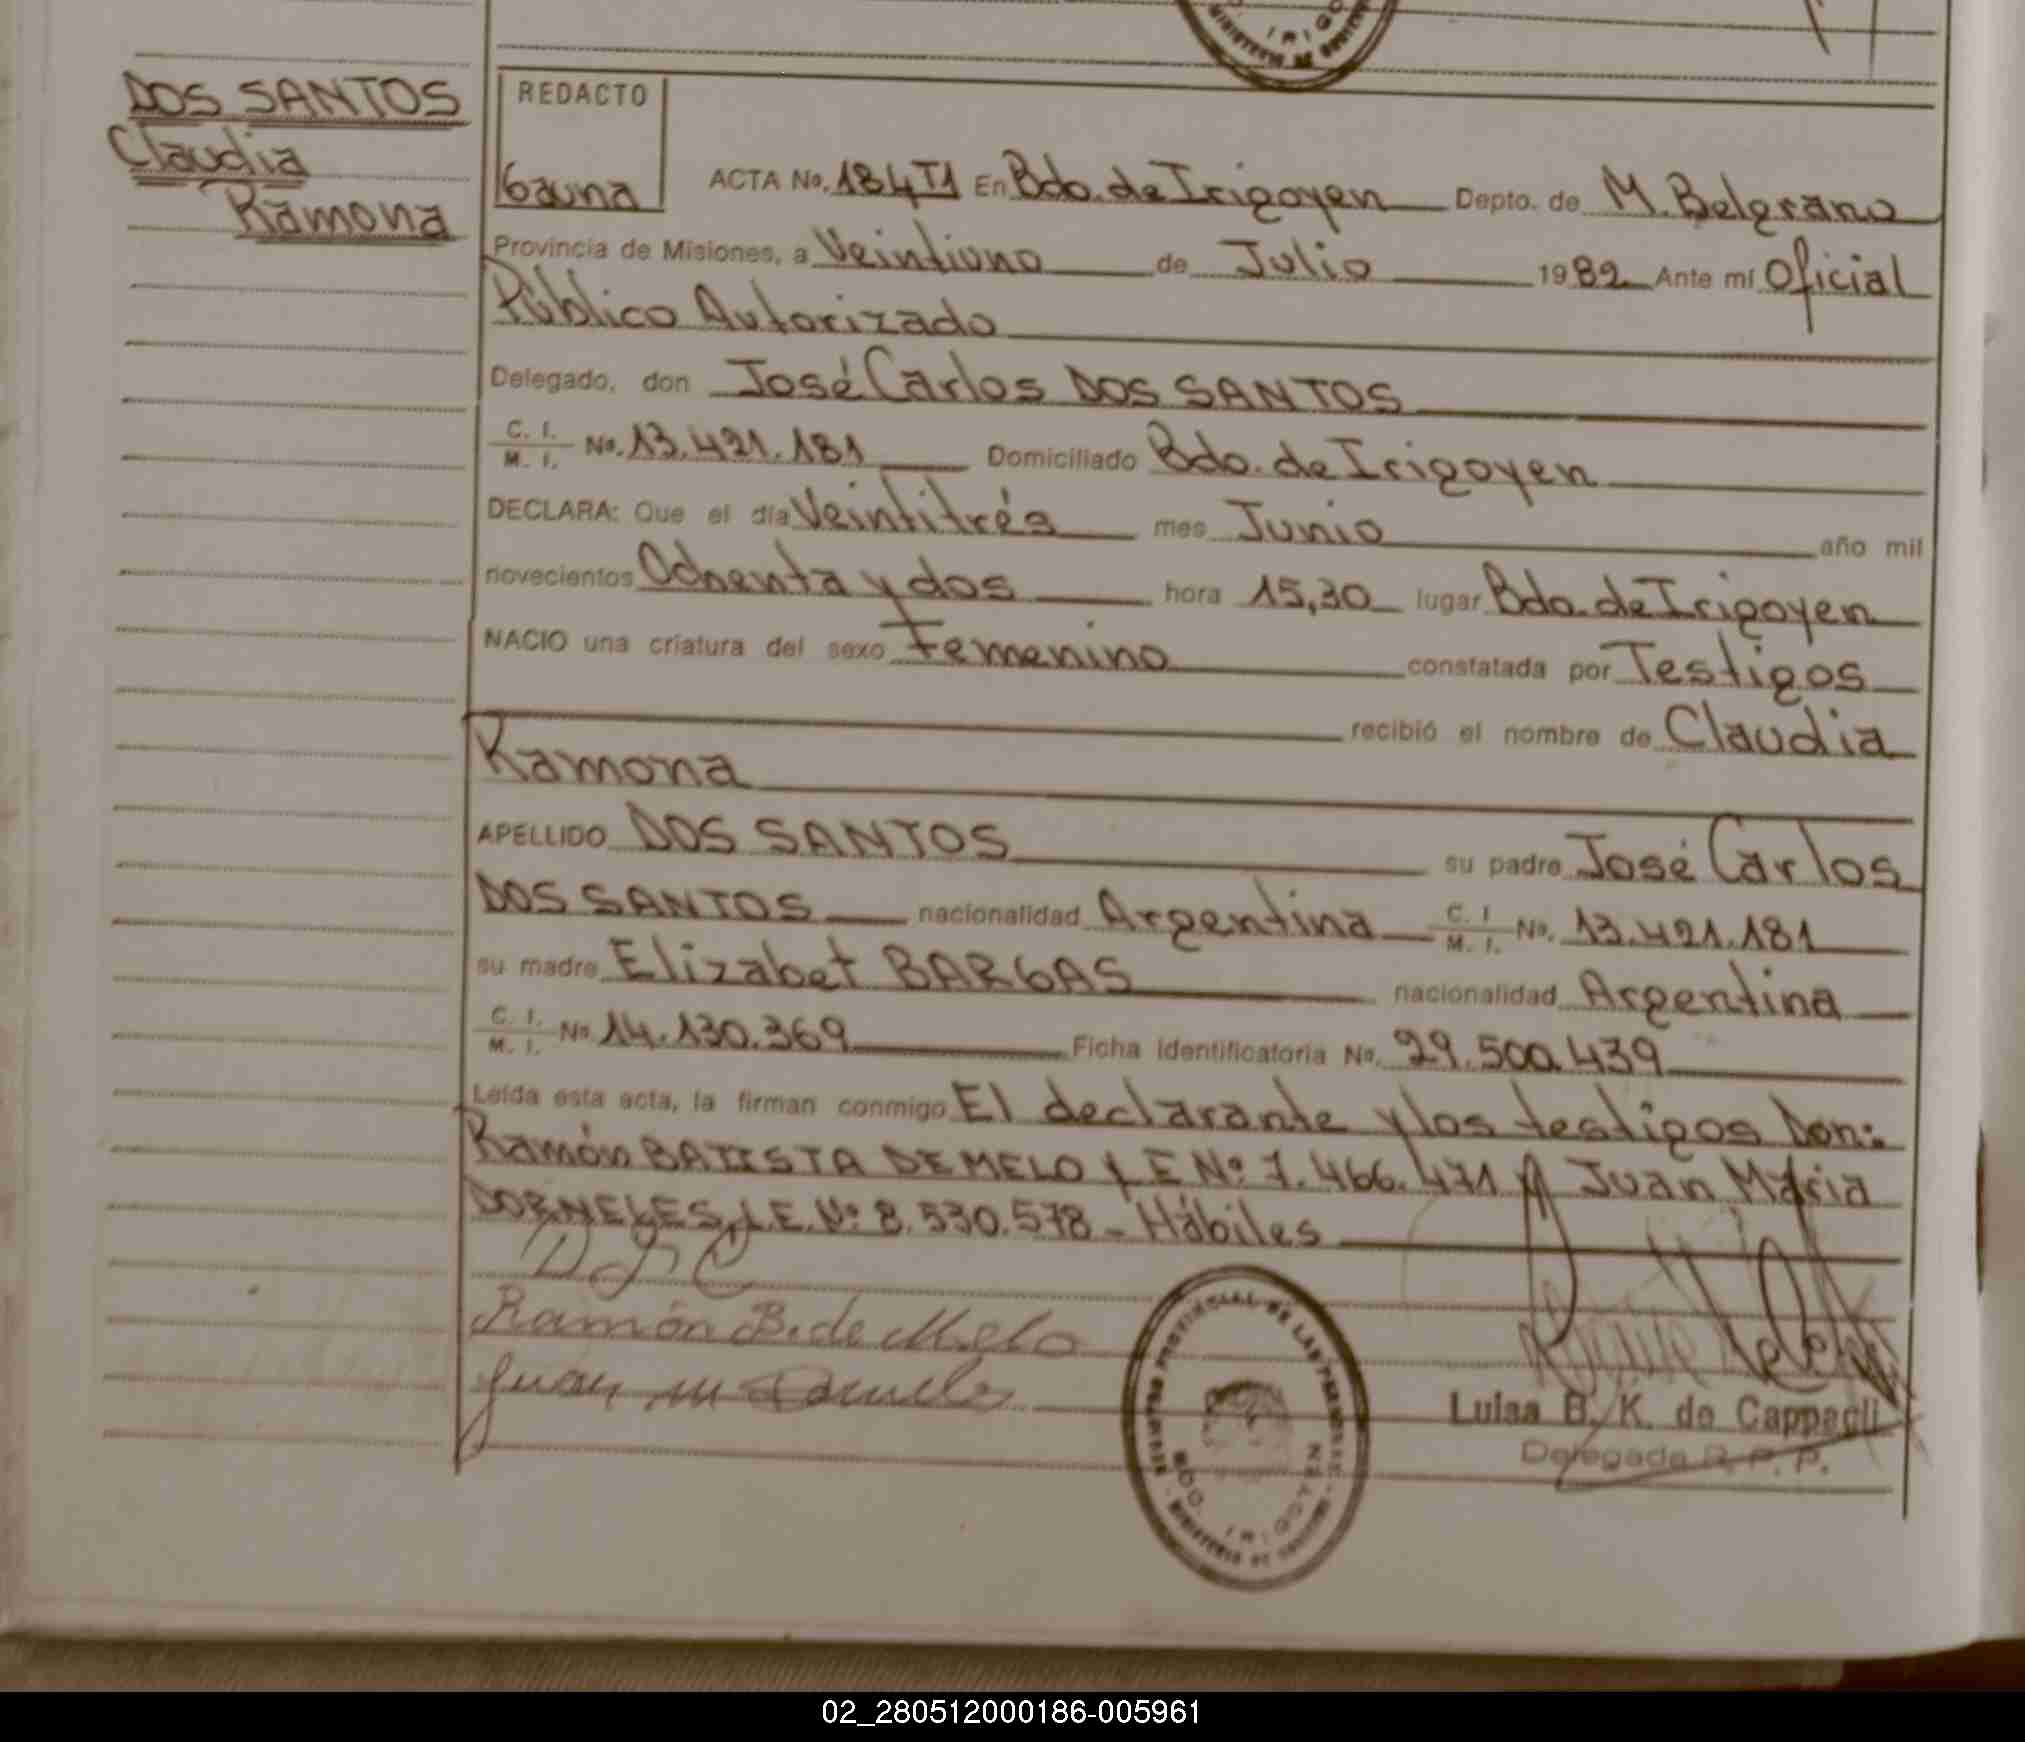 DOS SANTOS
Claudia
Ramona
REDACTO
Gauna
ACTA No. 184T1 En Bdo. de Irigoyen Depto. de M. Belgrano
Provincia de Misiones, a Veintiuno de Julio 1982 Ante mí Oficial
Público Autorizado
Delegado, don José Carlos DOS SANTOS
C. I. M. I. No. 13.421.181 Domiciliado Bdo. de Irigoyen
DECLARA: Que el día Veintitrés mes Junio año mil
novecientos Ochenta y dos hora 15,30 lugar Bdo. de Irigoyen
NACIO una criatura del sexo Femenino constatada por Testigos
recibió el nombre de Claudia
Ramona
APELLIDO DOS SANTOS su padre José Carlos
DOS SANTOS nacionalidad Argentina C. I. M. I. No. 13.421.181
su madre Elizabet BARGAS nacionalidad Argentina
C. I. M. I. No. 14.130.369 Ficha identificatoria No. 29.500.439
Leída esta acta, la firman conmigo El declarante y los testigos Don:
Ramón BATISTA DE MELO L.E Nº 7.466.471 y Juan María
DORNELES, L.E. Nº 8.530.578 - Hábiles
Ramón B. de Melo
Juan M
BDO. IRIGOYEN
Luisa B. K. de Cappagli
Delegada R. P. P.
02_280512000186-005961